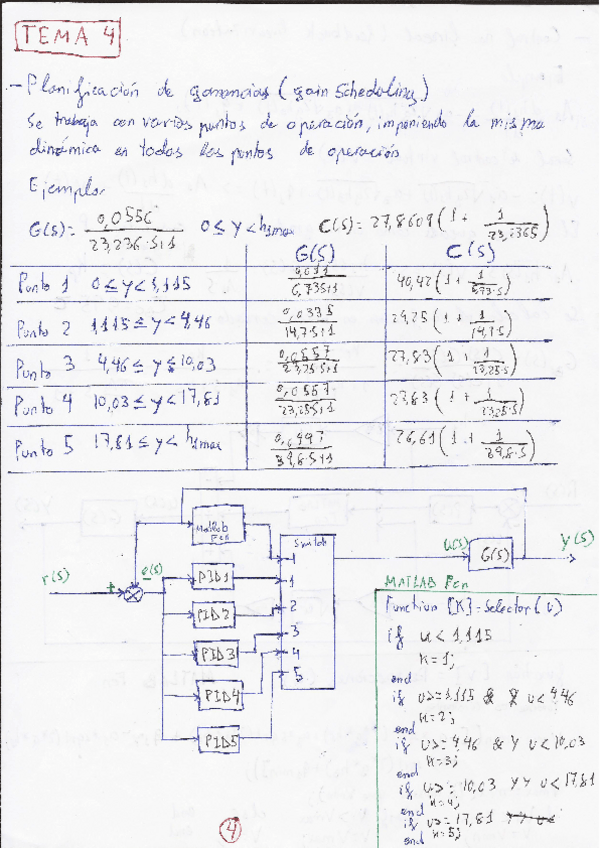 TEMA 4
- Planificación de ganancias (gain Scheduling)
Se trabaja con varios puntos de operación, imponiendo la misma
dinámica en todos los puntos de operación
Ejemplo.
G(s)= 0,0556 / 23,236·s+1   0 ≤ y < h1max   C(s)= 27,8609(1 + 1/23,2365)
G(s)   C(s)
Punto 1   0 ≤ y < 1,115   0,011 / 6,73s+1   40,42(1 + 1/6,73·s)
Punto 2   1,115 ≤ y < 4,46   0,0335 / 14,7s+1   29,25(1 + 1/14,7·s)
Punto 3   4,46 ≤ y ≤ 10,03   0,0557 / 23,25s+1   27,83(1 + 1/23,25·s)
Punto 4   10,03 ≤ y < 17,81   0,0557 / 23,25s+1   27,83(1 + 1/23,25·s)
Punto 5   17,81 ≤ y < h1max   / 39,8·s+1   26,61(1 + 1/39,8·s)
Matlab Fcn
Switch
r(s)
+
-
e(s)
PID1
PID2
PID3
PID4
PID5
1
2
3
4
5
u(s)
G(s)
y(s)
MATLAB Fcn
Function [K]=Selector(u)
if u < 1,115
K=1;
end
if u>=1,115 & u<4,46
K=2;
end
if u>=4,46 & y u<10,03
K=3;
end
if u>=10,03 y y u<17,81
K=4;
end
if u>=17,81
K=5;
end
4